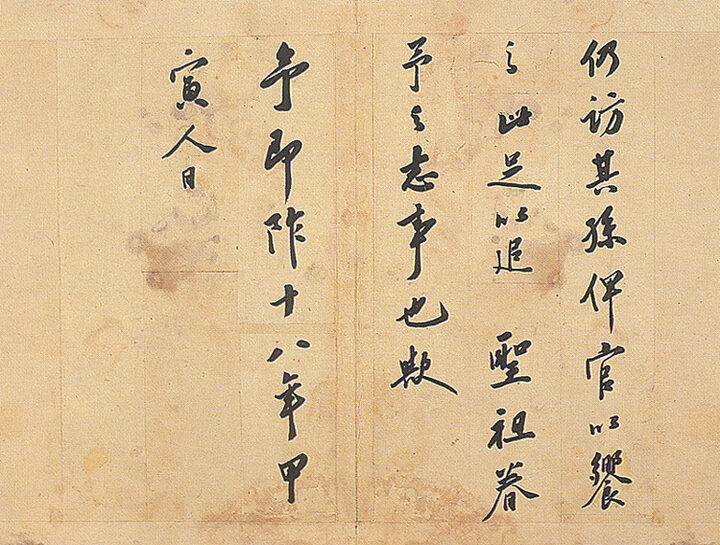 仍訪其孫俾官以饗
之此足以追 聖祖眷
予之志事也歟
予即阼十八年甲
寅人日